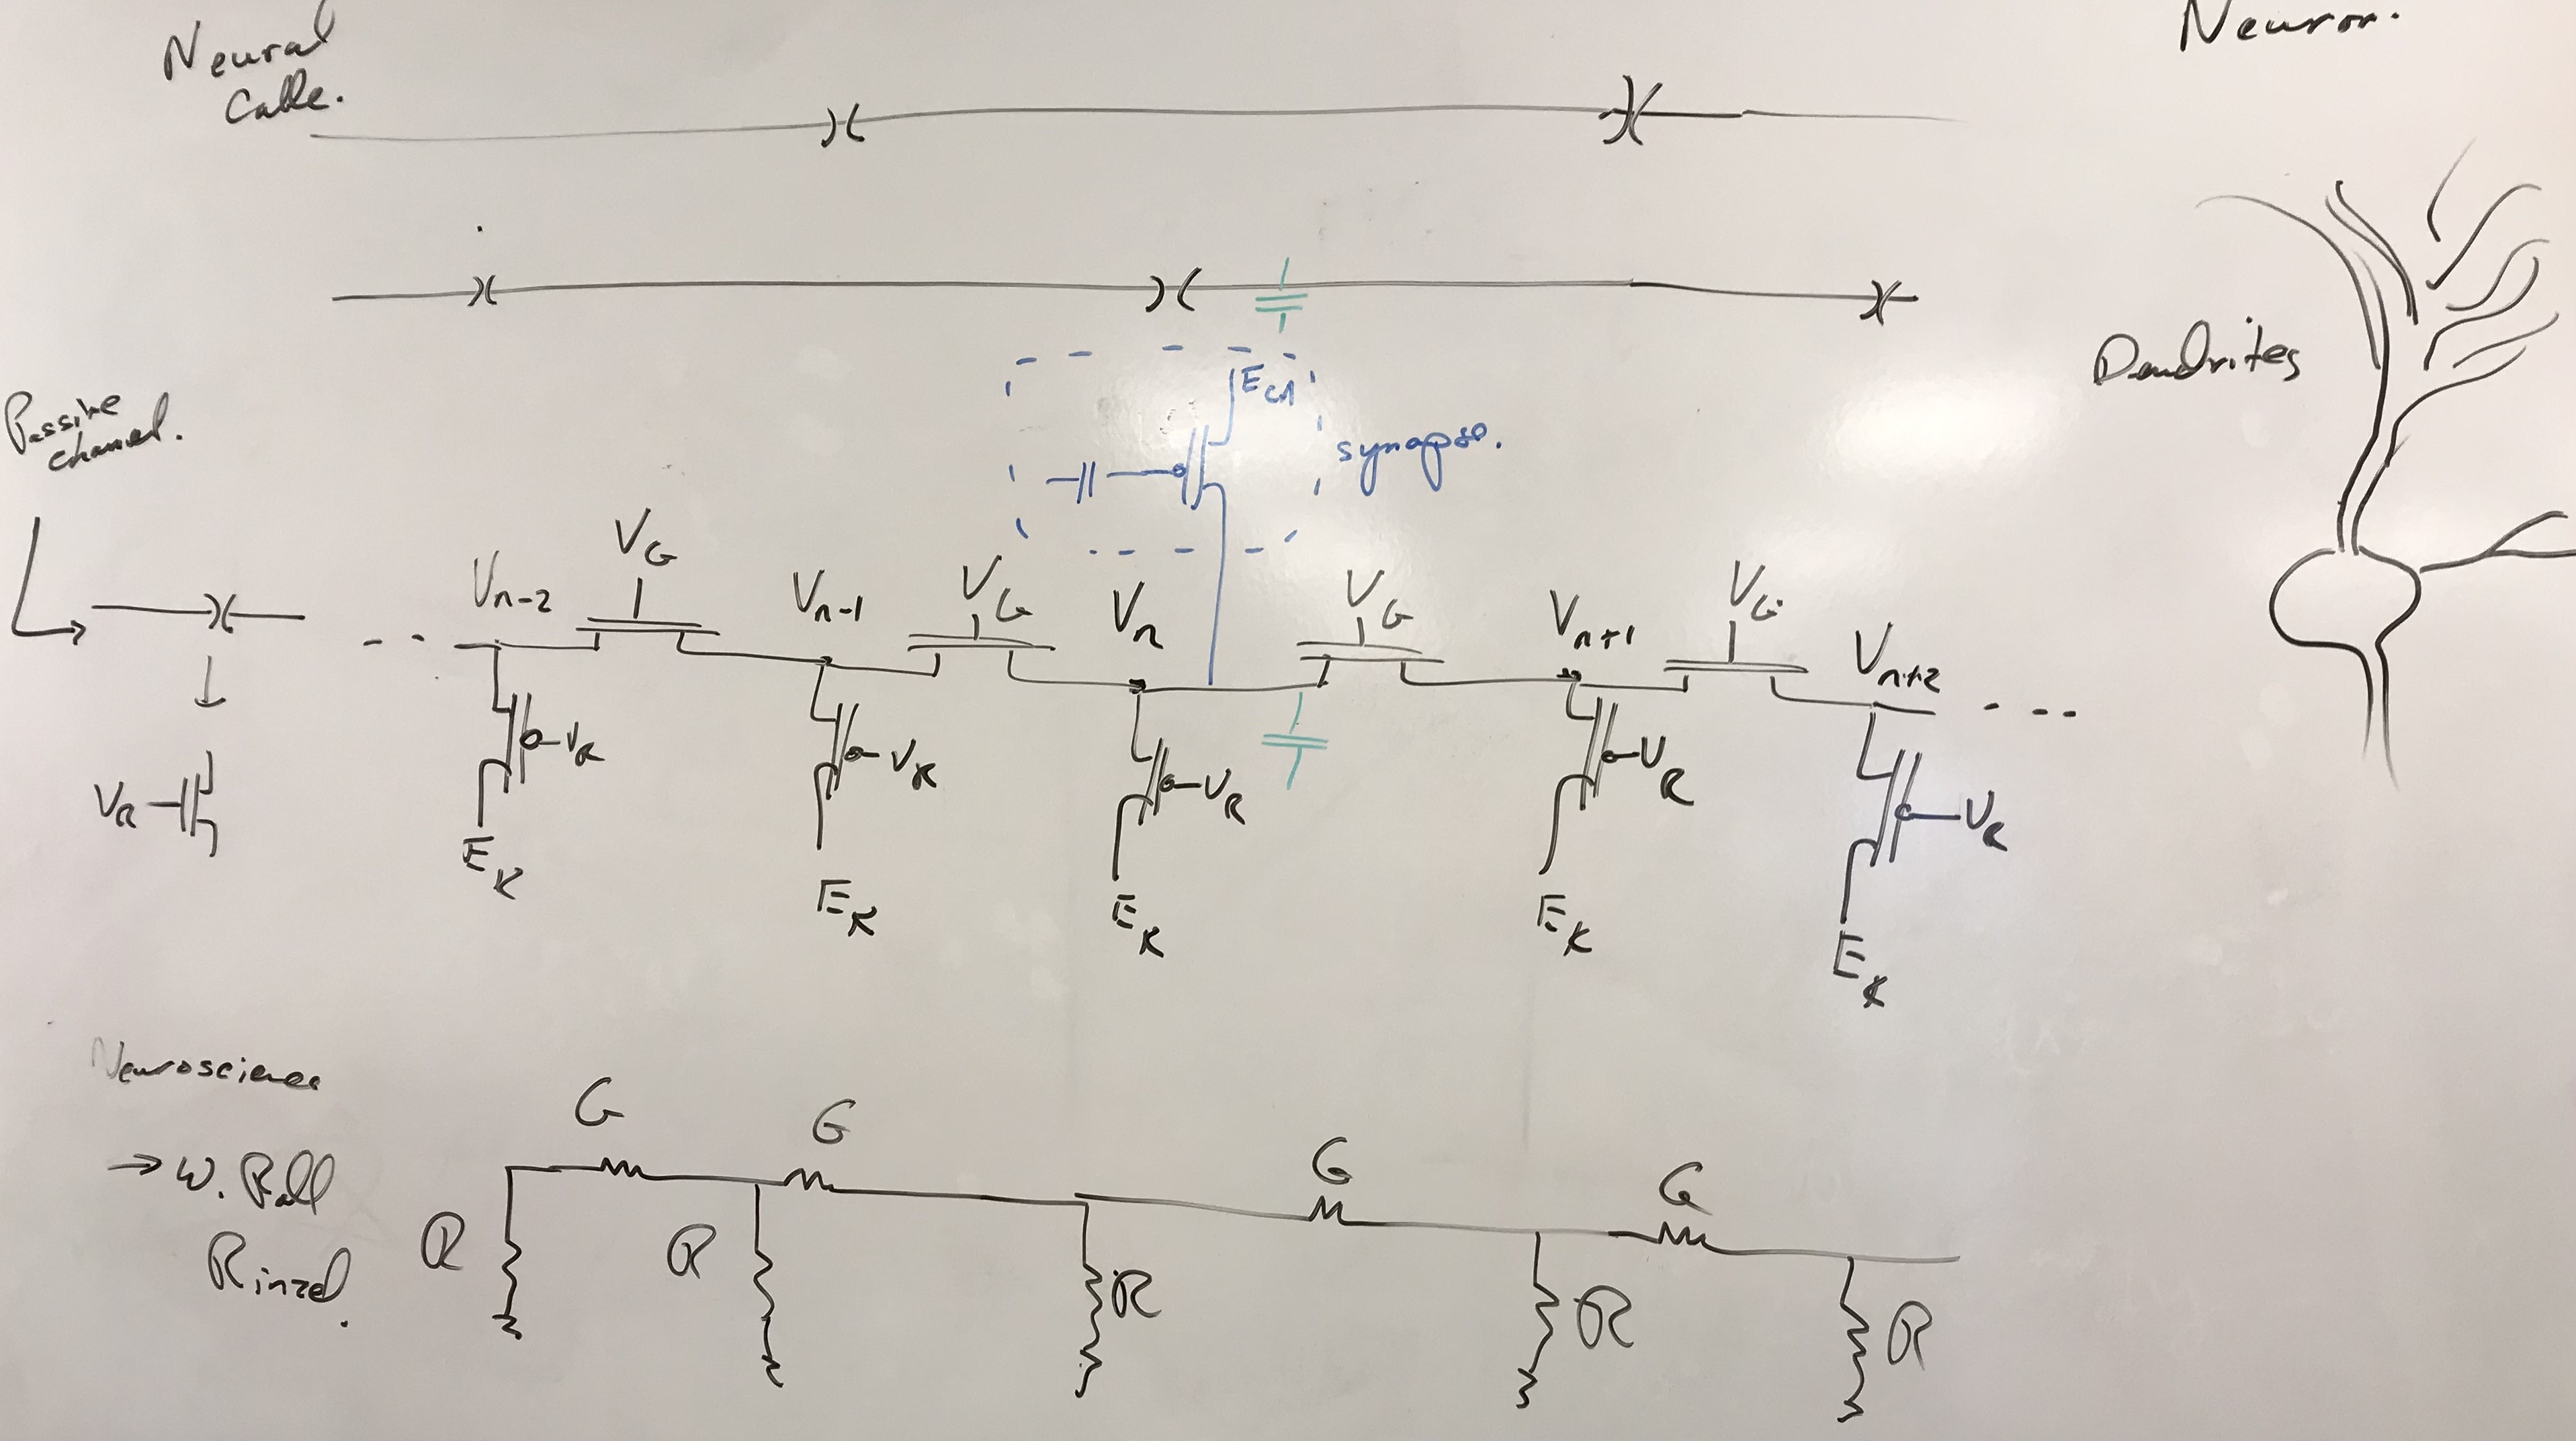 Neural
Cable.
Neuron.
Dendrites
Passive
channel.
E
synapse.
V_G
V_n-2
V_n-1
V_G
V_n
V_G
V_n+1
V_G
V_n+2
V_R
V_R
V_R
V_R
V_R
V_R
E_K
E_K
E_K
E_K
E_K
Neuroscience
→ W. Rall
Rinzel.
G
G
G
G
R
R
R
R
R